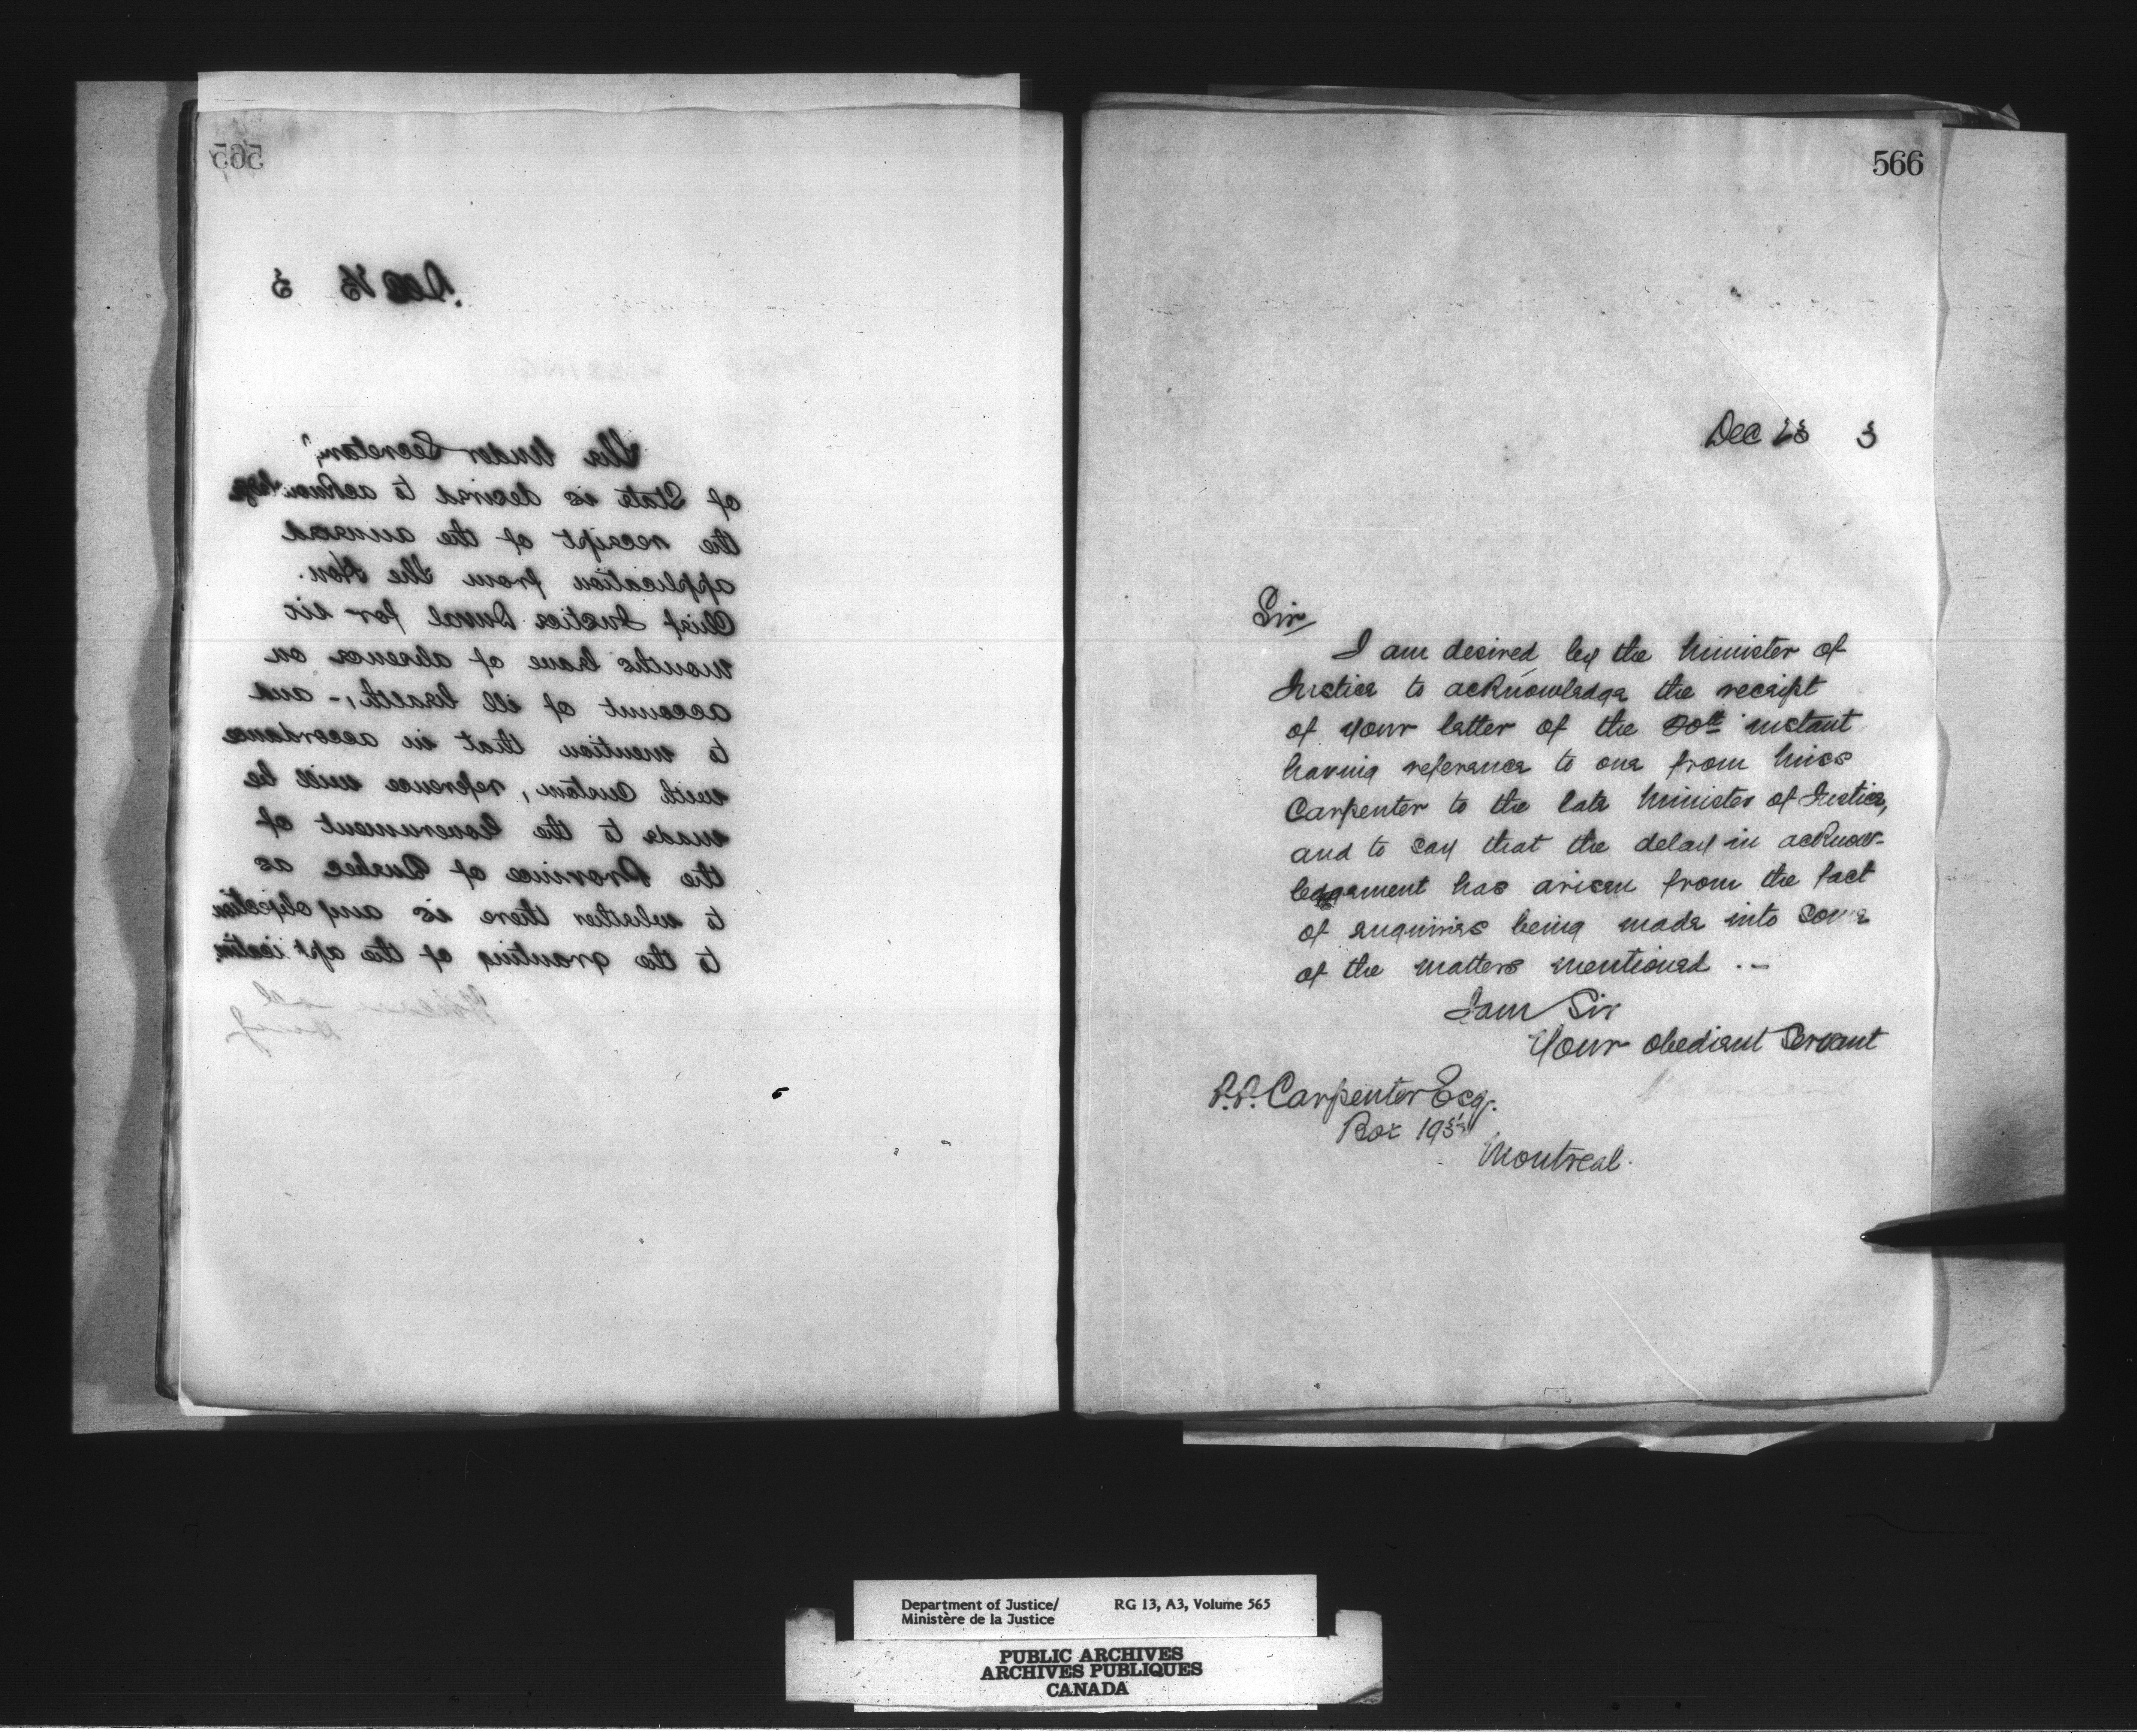 565
Dec 3
The Under Secretary
of State is desired to acknowledge
the receipt of the annexed
application from The Hon.
Chief Justice Duval for six
months leave of absence on
account of ill health; - and
to mention that in accordance
with custom, reference will be
made to the Government of
the Province of Quebec as
to whether there is any objection
to the granting of the application
566
Dec 23 3
Sir
I am desired by the Minister of
Justice to acknowledge the receipt
of your letter of the 20th instant
having reference to one from Miss
Carpenter to the late Minister of Justice,
and to say that the delay in acknow-
ledgement has arisen from the fact
of enquiries being made into some
of the matters mentioned . -
I am Sir
Your obedient Servant
P.P. Carpenter Esq.
Box
Montreal.
Department of Justice/ RG 13, A3, Volume 565
Ministère de la Justice
PUBLIC ARCHIVES
ARCHIVES PUBLIQUES
CANADA